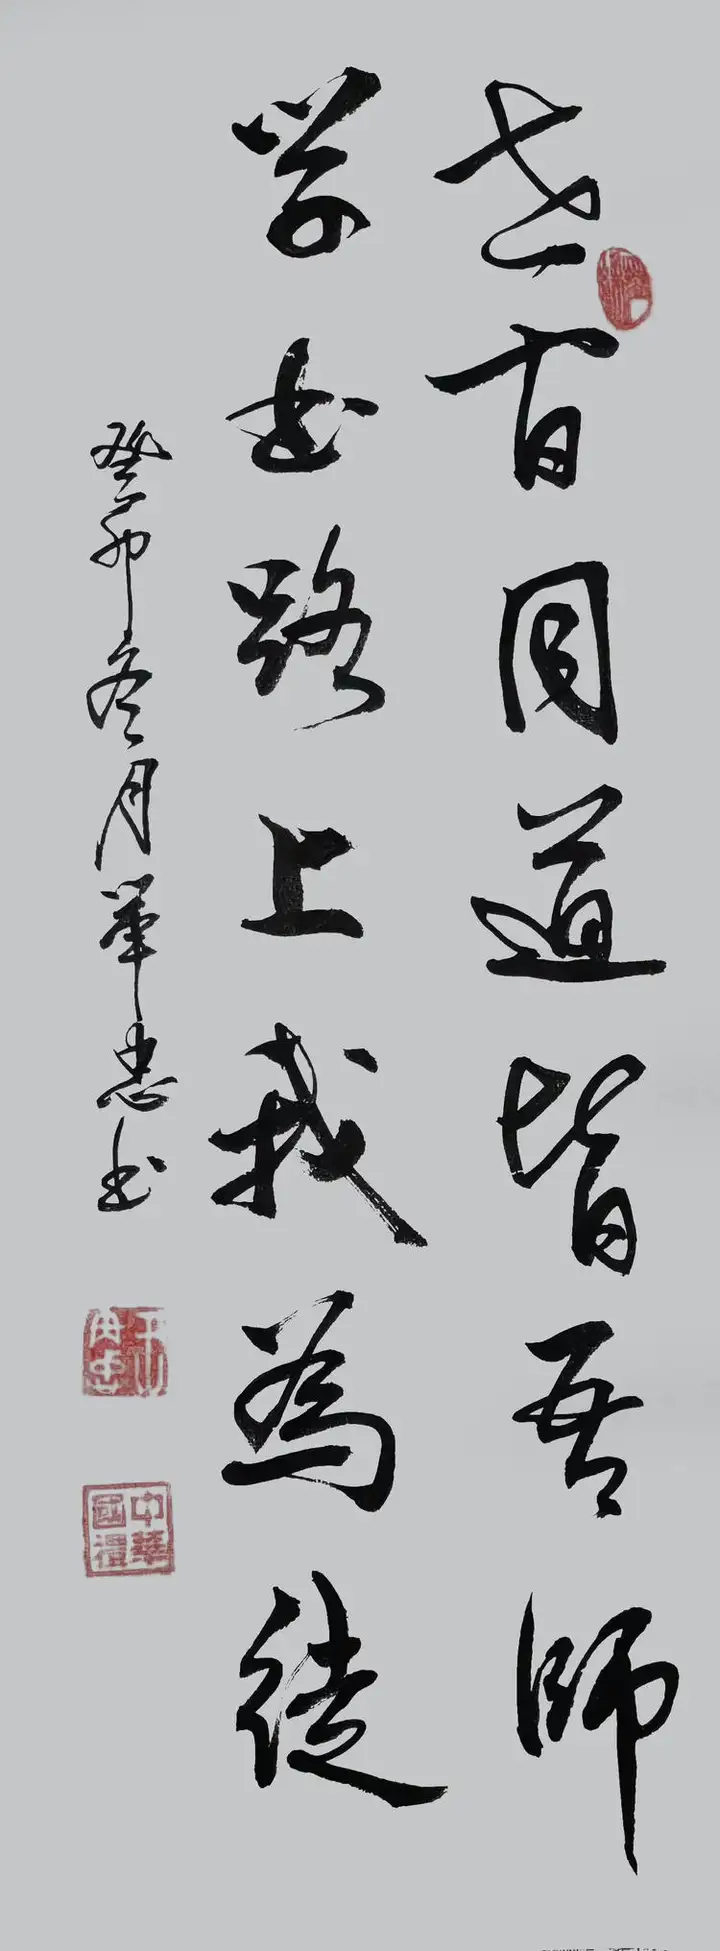 世有同道皆吾師
學書路上我為徒
癸卯冬月華忠书
中華國禮